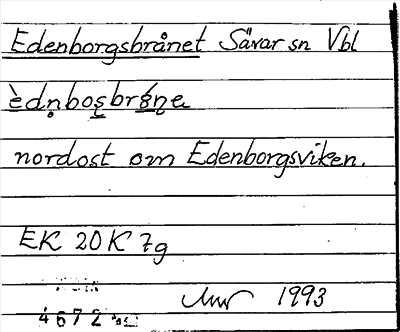 Edenborgsbrånet Sävar sn Vbl
èdn̥bosbrǿna
nordost om Edenborgsviken.
EK 20 K 7g
1993
4672